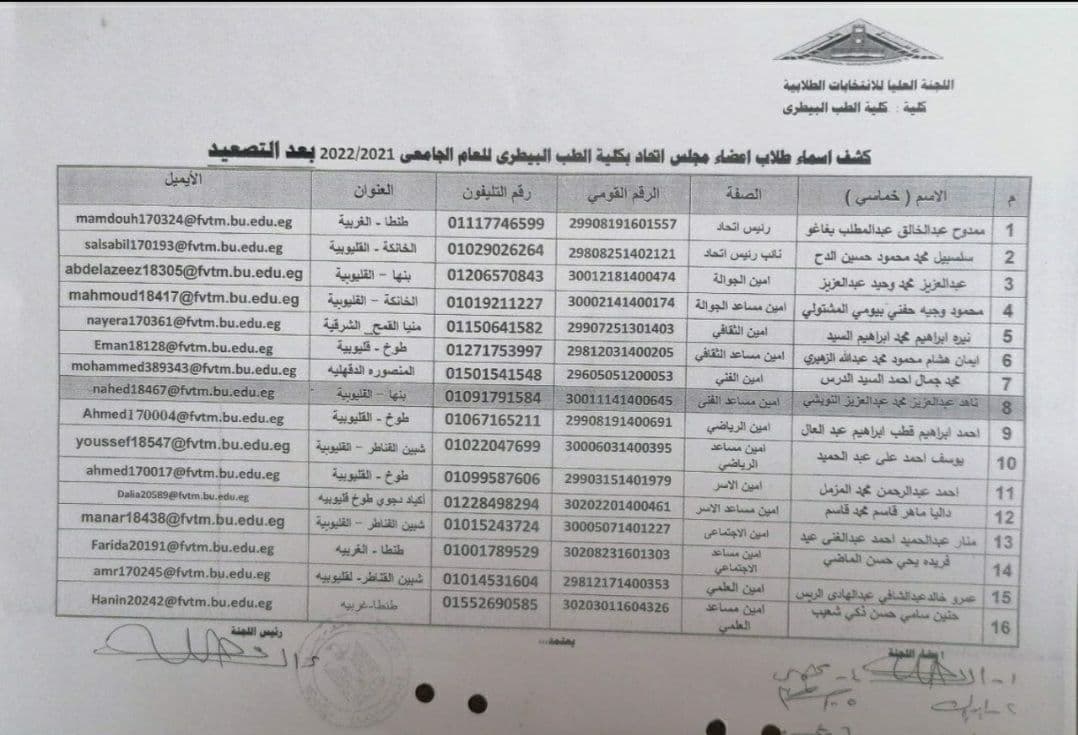 اللجنة العليا للانتخابات الطلابية
كلية : كلية الطب البيطرى
كشف اسماء طلاب اعضاء مجلس اتحاد بكلية الطب البيطرى للعام الجامعى 2022/2021 بعد التصعيد
م الاسم ( خماسي ) الصفة الرقم القومي رقم التليفون العنوان الأيميل
1 ممدوح عبدالخالق عبدالمطلب بغاغو رئيس اتحاد 29908191601557 01117746599 طنطا - الغربية mamdouh170324@fvtm.bu.edu.eg
2 سلسبيل محمد محمود حسين الدح نائب رئيس اتحاد 29808251402121 01029026264 الخانكة - القليوبية salsabil170193@fvtm.bu.edu.eg
3 عبدالعزيز محمد وحيد عبدالعزيز امين الجوالة 30012181400474 01206570843 بنها - القليوبية abdelazeez18305@fvtm.bu.edu.eg
4 محمود وجيه حفني بيومي المشتولي امين مساعد الجوالة 30002141400174 01019211227 الخانكة - القليوبية mahmoud18417@fvtm.bu.edu.eg
5 نيره ابراهيم محمد ابراهيم السيد امين الثقافي 29907251301403 01150641582 منيا القمح_الشرقية nayera170361@fvtm.bu.edu.eg
6 ايمان هشام محمود محمد عبدالله الزهيري امين مساعد الثقافي 29812031400205 01271753997 طوخ - قليوبية Eman18128@fvtm.bu.edu.eg
7 محمد جمال احمد السيد الدرس امين الفني 29605051200053 01501541548 المنصوره الدقهليه mohammed389343@fvtm.bu.edu.eg
8 ناهد عبدالعزيز محمد عبدالعزيز النويشي امين مساعد الفنى 30011141400645 01091791584 بنها - القليوبية nahed18467@fvtm.bu.edu.eg
9 احمد ابراهيم قطب ابراهيم عبد العال امين الرياضي 29908191400691 01067165211 طوخ - القليوبية Ahmed170004@fvtm.bu.edu.eg
10 يوسف احمد على عبد الحميد امين مساعد 30006031400395 01022047699 شبين القناطر - القليوبية youssef18547@fvtm.bu.edu.eg
الرياضي
11 احمد عبدالرحمن محمد المزمل امين الاسر 29903151401979 01099587606 طوخ - القليوبية ahmed170017@fvtm.bu.edu.eg
12 داليا ماهر قاسم محمد قاسم امين مساعد الاسر 30202201400461 01228498294 أكياد دجوي طوخ قليوبيه Dalia20589@fvtm.bu.edu.eg
13 منار عبدالحميد احمد عبدالغنى عيد امين الاجتماعى 30005071401227 01015243724 شبين القناطر - القليوبية manar18438@fvtm.bu.edu.eg
14 فريده يحي حسن الماضي امين مساعد 30208231601303 01001789529 طنطا - الغربيه Farida20191@fvtm.bu.edu.eg
الاجتماعي
15 عمرو خالدعبدالشافي عبدالهادى الريس امين العلمي 29812171400353 01014531604 شبين القناطر- لقليوبيه amr170245@fvtm.bu.edu.eg
16 حنين سامي حسن ذكي شعيب امين مساعد 30203011604326 01552690585 طنطا-غربيه Hanin20242@fvtm.bu.edu.eg
العلمي
يعتمد،،،
رئيس اللجنة
اللجنة